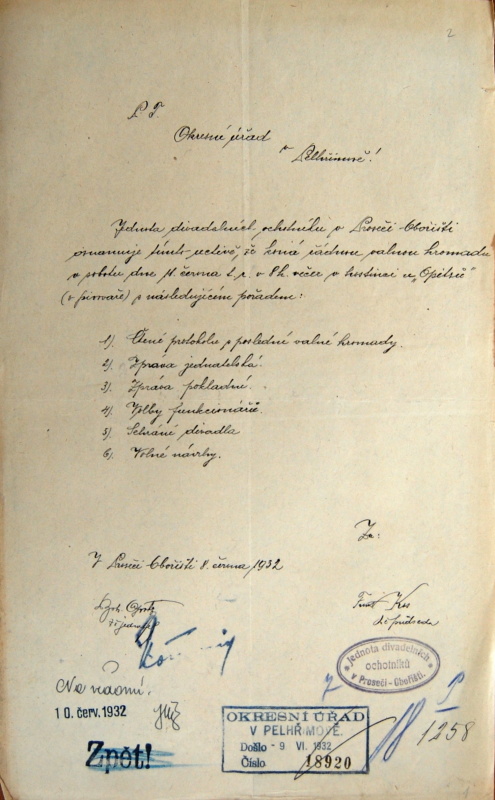 2
P. T.
Okresní úřad
v Pelhřimově!
Jednota divadelních ochotníků v Proseči-Obořišti
oznamuje tímto uctivě, že koná řádnou valnou hromadu
v sobotu dne 11. června t. r. v 8 h. večer v hostinci u „Opitzů“
(v pivovaře) s následujícím pořadem:
1). Čtení protokolu s poslední valné hromady.
2). Zpráva jednatelská.
3). Zpráva pokladní.
4). Volby funkcionářů.
5). Sehrání divadla
6). Volné návrhy.
Za:
V Proseči Obořišti 8. června 1932
t. č. předseda
t. č. jednatel
Jednota divadelních
ochotníků
v Proseči-Obořišti.
Na vědomí.
10. červ. 1932
Zpět!
OKRESNÍ ÚŘAD
V PELHŘIMOVĚ.
Došlo - 9 VI. 1932
Číslo 18920
1258